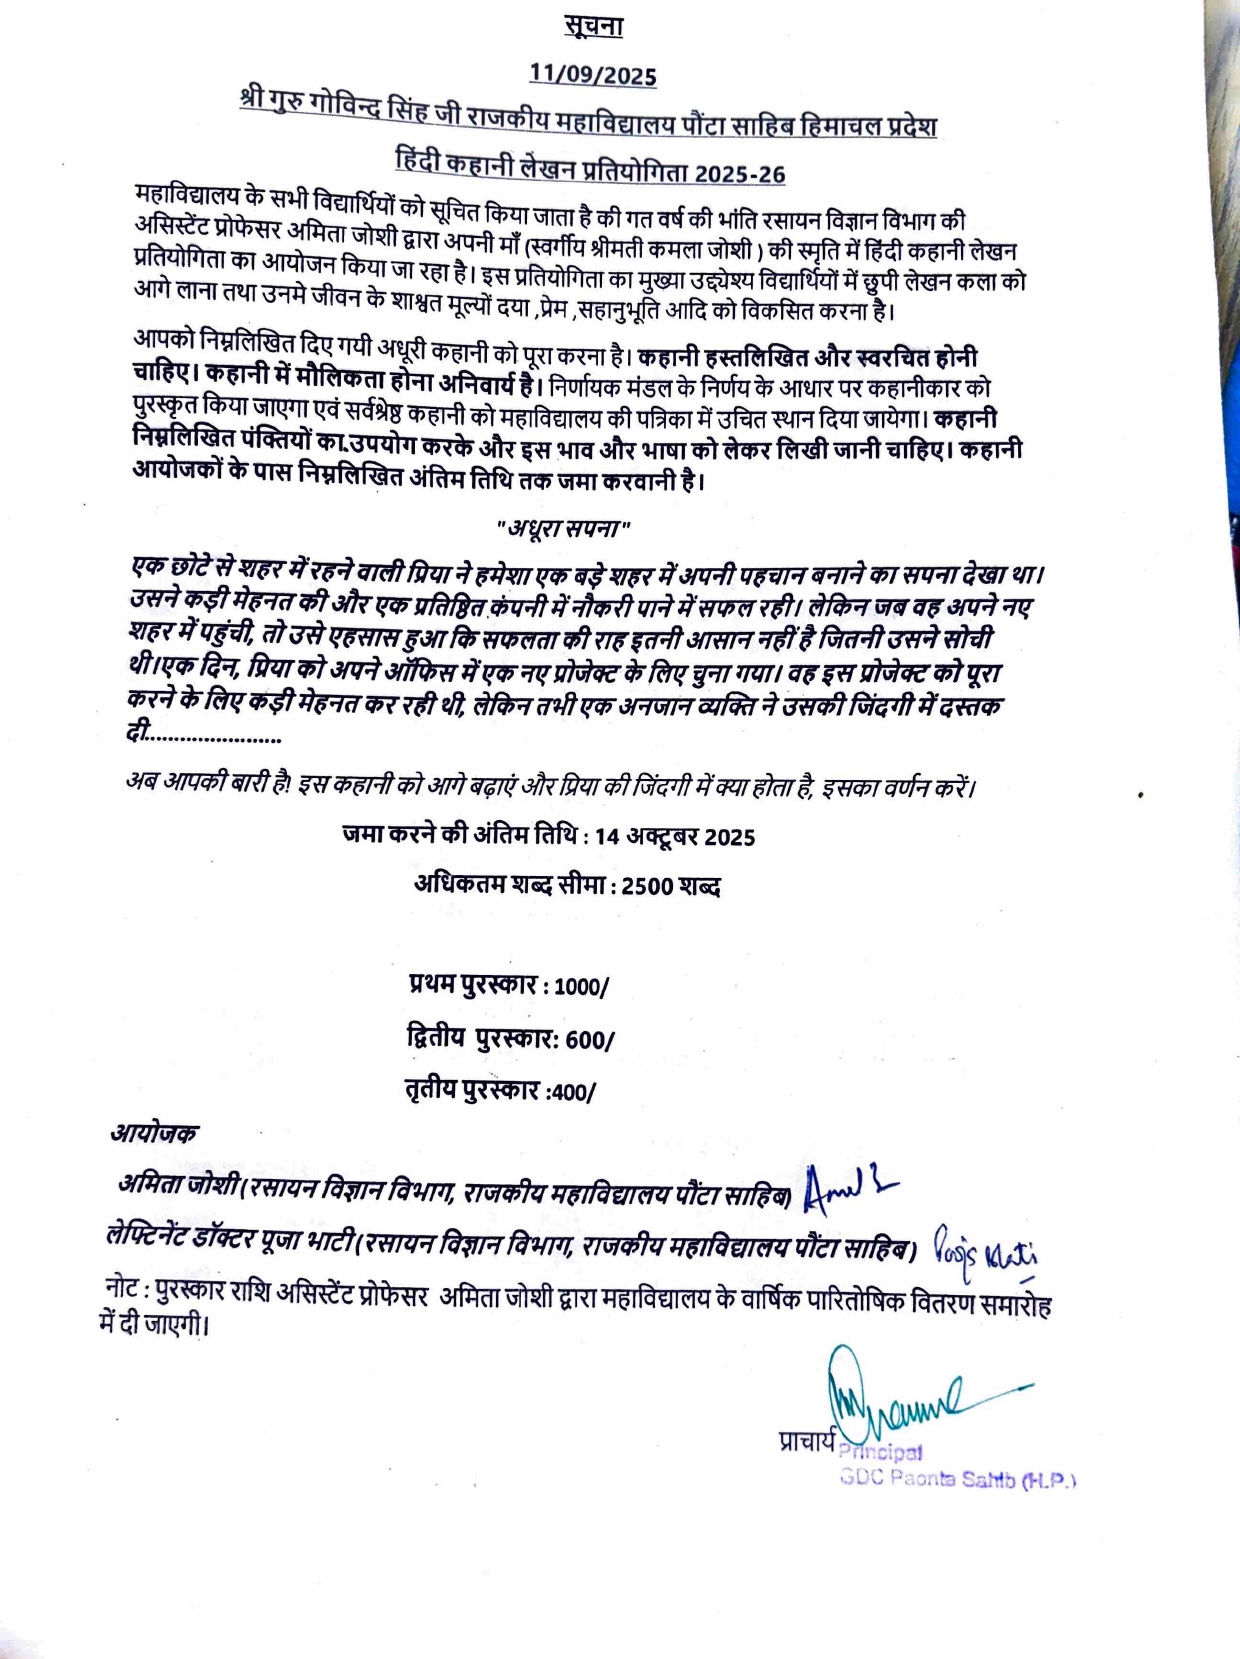 सूचना
11/09/2025
श्री गुरु गोविन्द सिंह जी राजकीय महाविद्यालय पौंटा साहिब हिमाचल प्रदेश
हिंदी कहानी लेखन प्रतियोगिता 2025-26
महाविद्यालय के सभी विद्यार्थियों को सूचित किया जाता है की गत वर्ष की भांति रसायन विज्ञान विभाग की
असिस्टेंट प्रोफेसर अमिता जोशी द्वारा अपनी माँ (स्वर्गीय श्रीमती कमला जोशी ) की स्मृति में हिंदी कहानी लेखन
प्रतियोगिता का आयोजन किया जा रहा है। इस प्रतियोगिता का मुख्या उद्द्येश्य विद्यार्थियों में छुपी लेखन कला को
आगे लाना तथा उनमे जीवन के शाश्वत मूल्यों दया ,प्रेम ,सहानुभूति आदि को विकसित करना है।
आपको निम्नलिखित दिए गयी अधूरी कहानी को पूरा करना है। कहानी हस्तलिखित और स्वरचित होनी
चाहिए। कहानी में मौलिकता होना अनिवार्य है। निर्णायक मंडल के निर्णय के आधार पर कहानीकार को
पुरस्कृत किया जाएगा एवं सर्वश्रेष्ठ कहानी को महाविद्यालय की पत्रिका में उचित स्थान दिया जायेगा। कहानी
निम्नलिखित पंक्तियों का उपयोग करके और इस भाव और भाषा को लेकर लिखी जानी चाहिए। कहानी
आयोजकों के पास निम्नलिखित अंतिम तिथि तक जमा करवानी है।
"अधूरा सपना"
एक छोटे से शहर में रहने वाली प्रिया ने हमेशा एक बड़े शहर में अपनी पहचान बनाने का सपना देखा था।
उसने कड़ी मेहनत की और एक प्रतिष्ठित कंपनी में नौकरी पाने में सफल रही। लेकिन जब वह अपने नए
शहर में पहुंची, तो उसे एहसास हुआ कि सफलता की राह इतनी आसान नहीं है जितनी उसने सोची
थी।एक दिन, प्रिया को अपने ऑफिस में एक नए प्रोजेक्ट के लिए चुना गया। वह इस प्रोजेक्ट को पूरा
करने के लिए कड़ी मेहनत कर रही थी, लेकिन तभी एक अनजान व्यक्ति ने उसकी जिंदगी में दस्तक
दी.......................
अब आपकी बारी है! इस कहानी को आगे बढ़ाएं और प्रिया की जिंदगी में क्या होता है, इसका वर्णन करें।
जमा करने की अंतिम तिथि : 14 अक्टूबर 2025
अधिकतम शब्द सीमा : 2500 शब्द
प्रथम पुरस्कार : 1000/
द्वितीय पुरस्कार: 600/
तृतीय पुरस्कार :400/
आयोजक
अमिता जोशी(रसायन विज्ञान विभाग, राजकीय महाविद्यालय पौंटा साहिब)
लेफ्टिनेंट डॉक्टर पूजा भाटी(रसायन विज्ञान विभाग, राजकीय महाविद्यालय पौंटा साहिब)
नोट : पुरस्कार राशि असिस्टेंट प्रोफेसर अमिता जोशी द्वारा महाविद्यालय के वार्षिक पारितोषिक वितरण समारोह
में दी जाएगी।
प्राचार्य
Principal
GDC Paonta Sahib (H.P.)